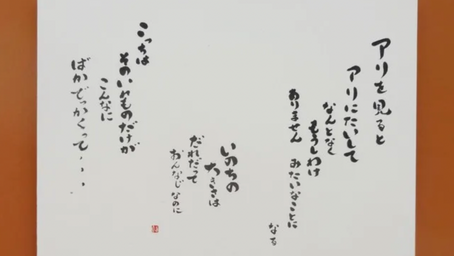 アリを見ると
アリにたいして
なんとなく
もうしわけ
ありません みたいなことに
なる
いのちの
大きさは
だれだって
おんなじ なのに
こっちは
そのいれものだけが
こんなに
ばかでっかくって・・・・